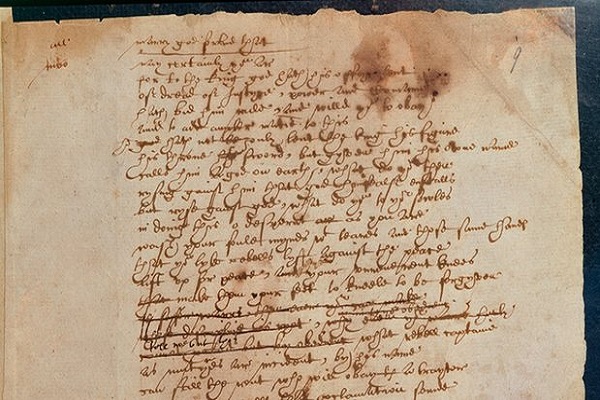 all
marry god forbid that
moo
nay certainly yo ar
for to the king god hath his offyce lent
of dread of Iustyce, power and Comaund
hath bid him rule, and willd yo to obay
and to add ampler matie to this
he hath not only lent the king his figure
his throne his sword, but gyven him his owne name
calls him a god on earth, what do yo then
rysing gainst him that god himsealf enstalls
but ryse gainst god, what do yo to yor sowles
in doing this o desperat ar as you are
wash your foule mynds wt teares and those same handes
that yo lyke rebells lyft against the peace
lift up for peace, and your unreuerent knees
make them your feet to kneele to be forgyven
but by obedienc what rebell captaine
as mutynes ar incident, by his name
can still the rout who will obay a traytor
proclamation sounde
9